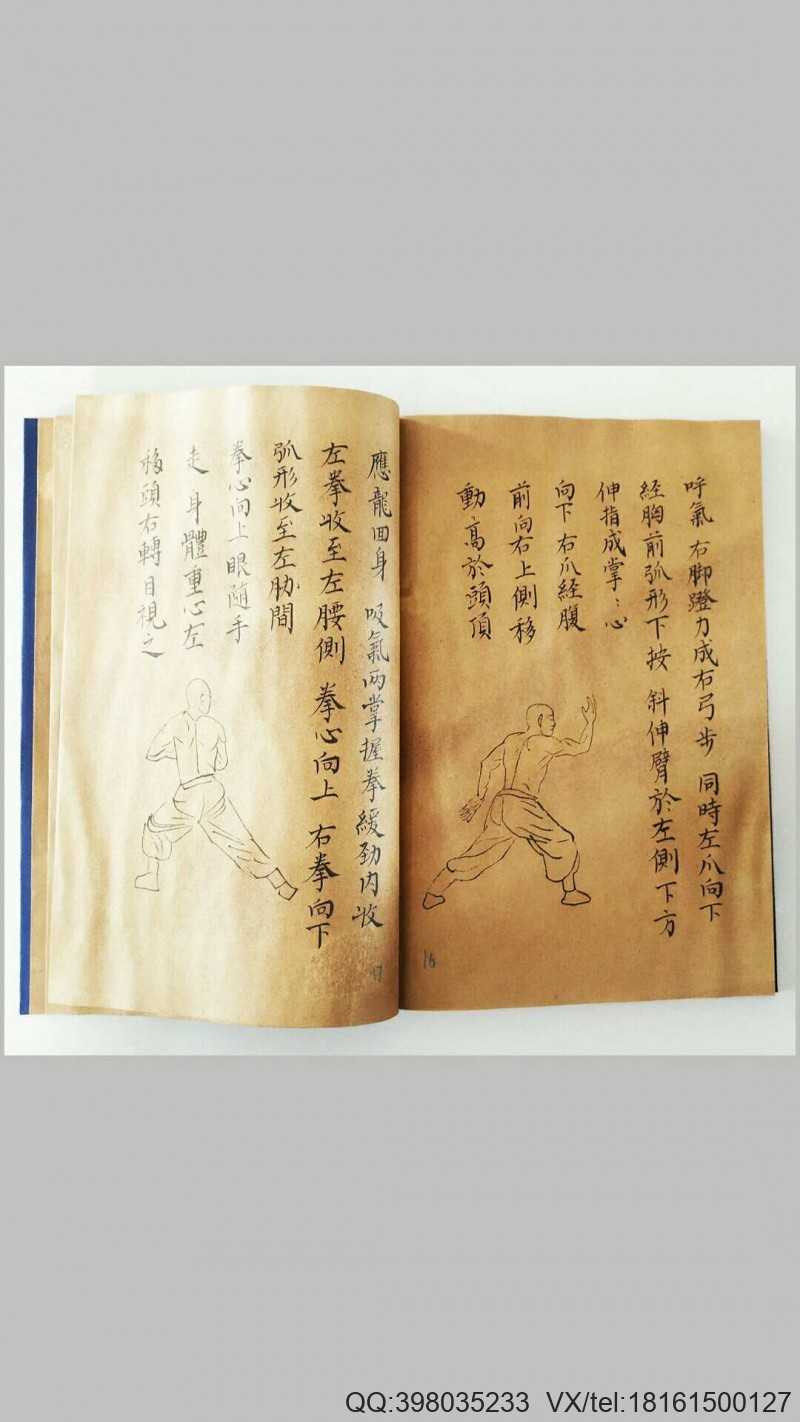 呼氣 右脚蹬力成右弓步 同時左爪向下
經胸前弧形下按 斜伸臂於左側下方
伸指成掌:心
向下 右爪經腹
前向右上側移
動 高於頭頂
16
應龍回身 吸氣兩掌握拳緩勁内收
左拳收至左腰側 拳心向上 右拳向下
弧形收至左肋間
拳心向上眼隨手
走 身體重心左
移頭右轉目視之
17
QQ:398035233 VX/tel:18161500127